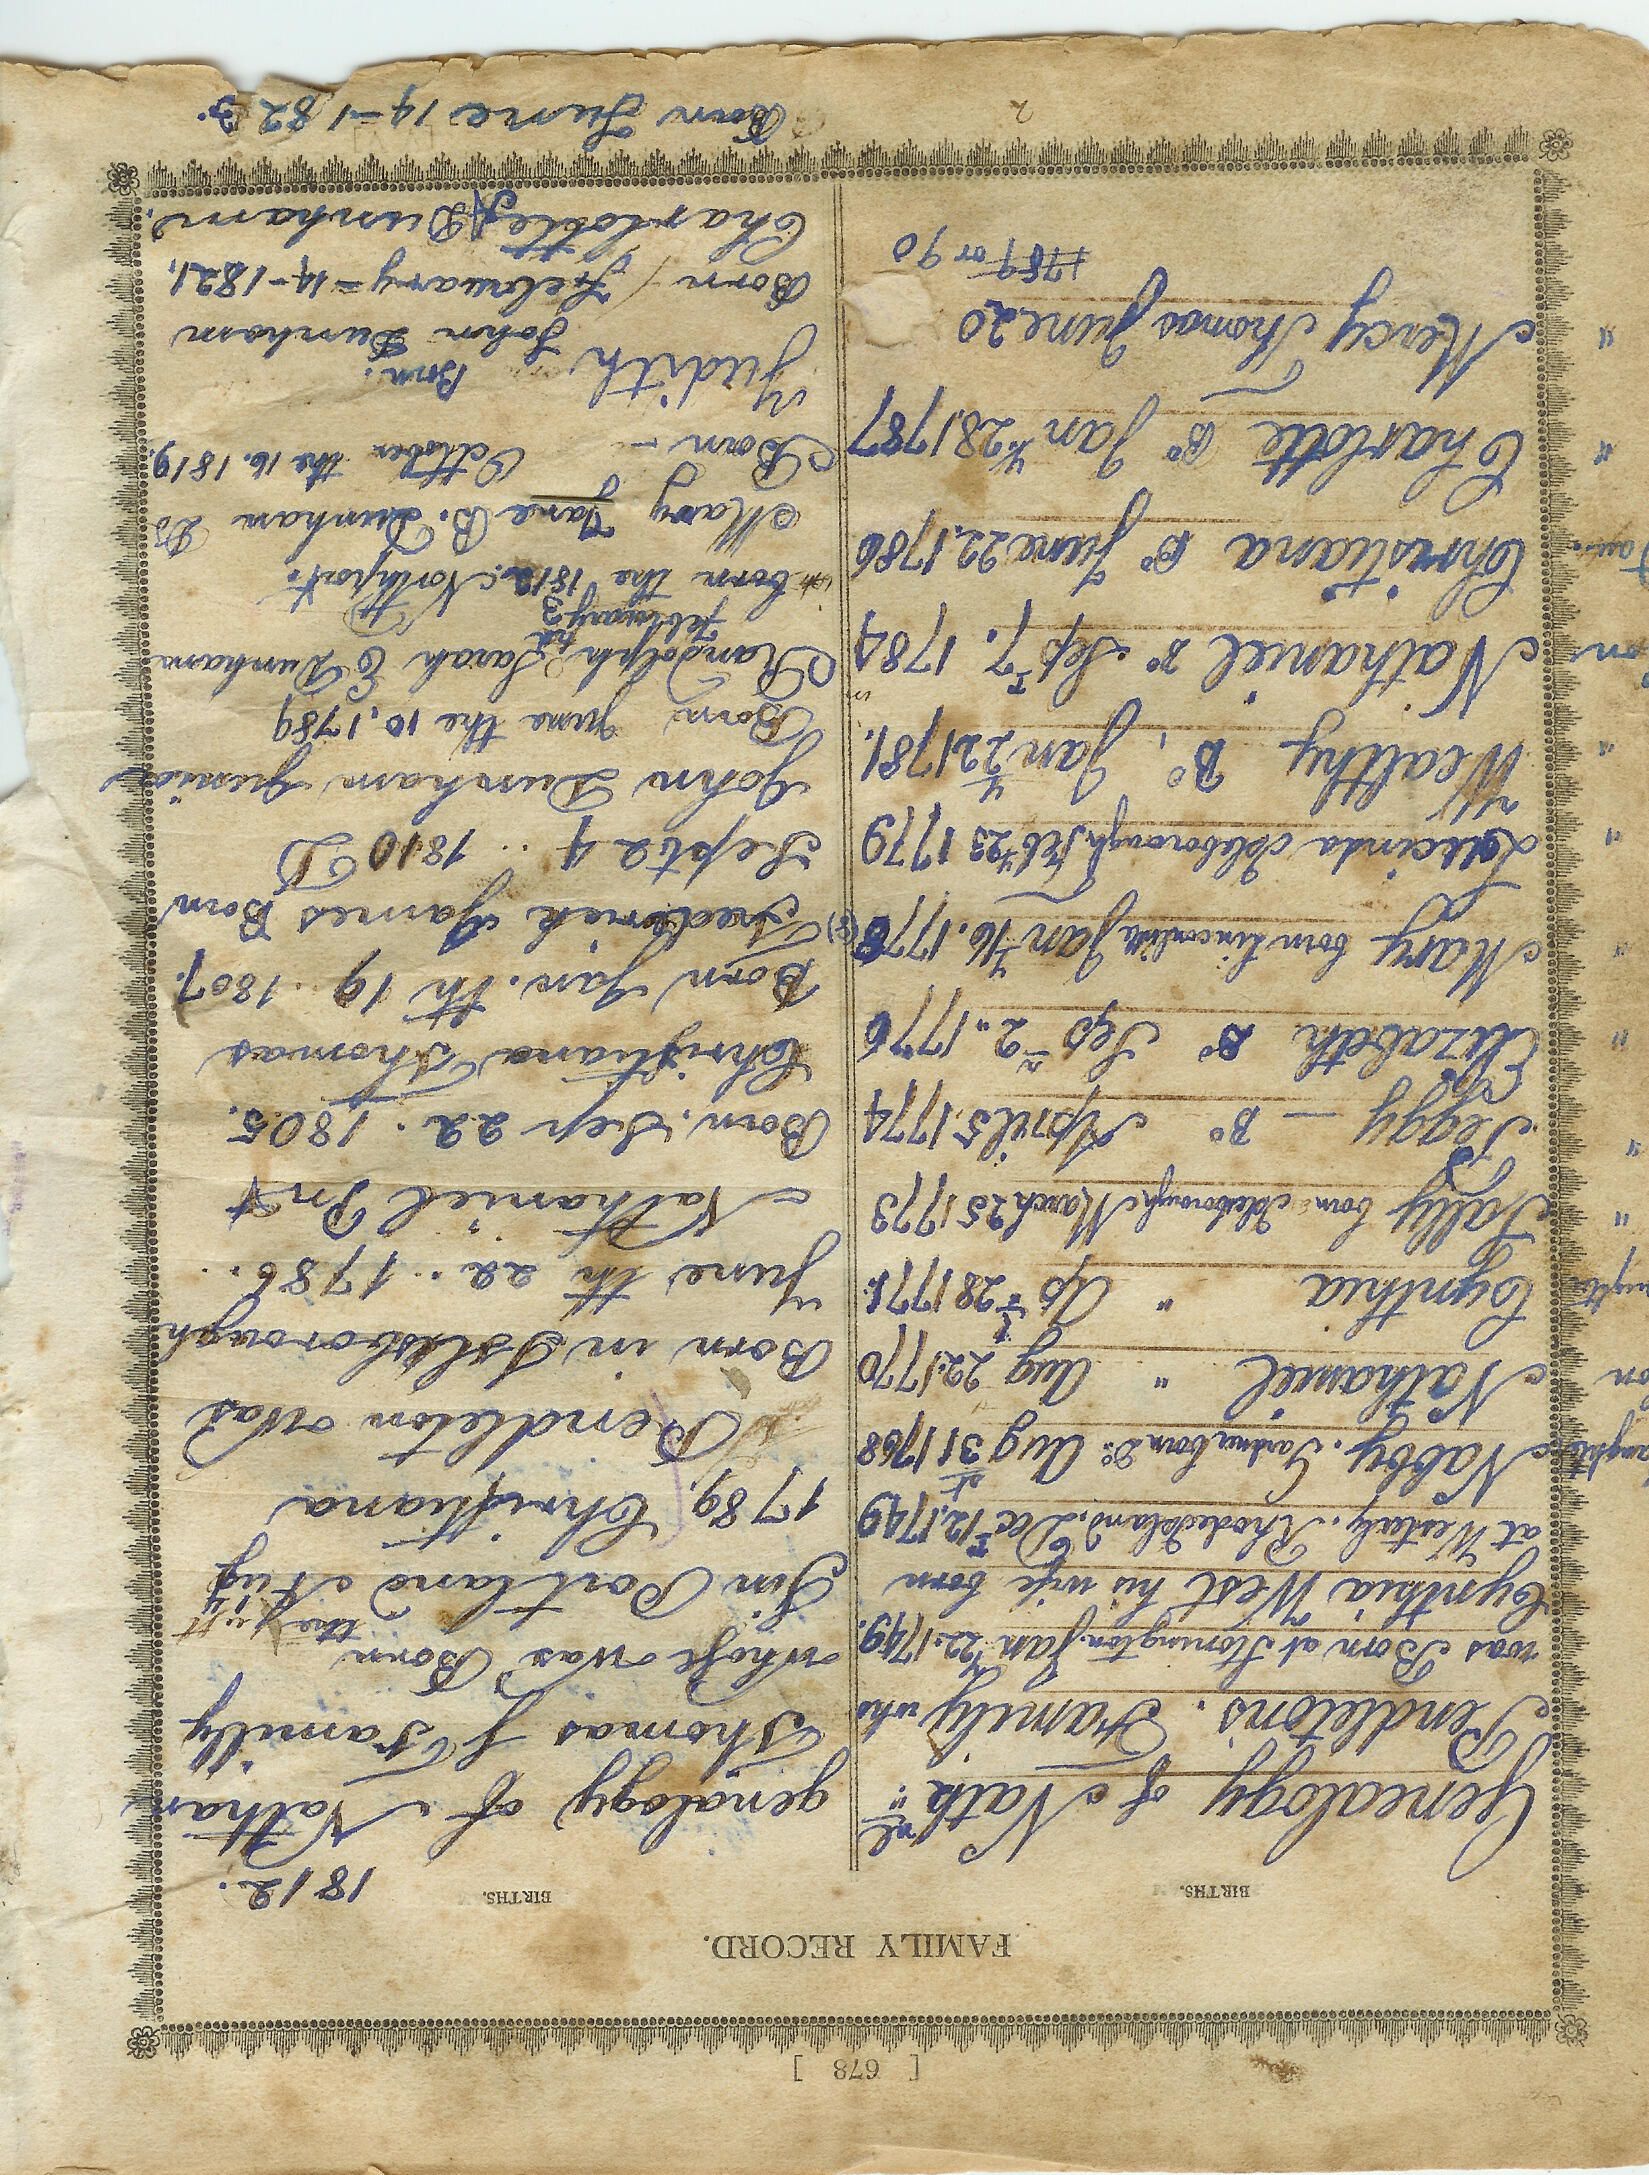 [ 678 ]
FAMILY RECORD.
BIRTHS.
Genealogy of Nathl
Pendletons. Family who
was Born at Stonington Jan 22. 1749.
Cynthia West his wife born
at Westerly. Rhode Island. Dec 12, 1749
Nabby. born Do Aug 31st 1768
Nathaniel " Aug 22. 1770
Cynthia " 28 1771.
Sally born Isleborough March 25 1773
Peggy — Do April 5. 1774
Elizabeth Do Sep 2,, 1776
Mary born Lincolnville Jan 16. 1778
Lucinda Isleborough Feb 23 1779
Wealthy Do, Jan 22 1781.
Nathaniel Do Sept 7. 1784
Christiana Do June 22, 1786
Charlotte Do Jan 28 1787
Mercy Thomas June 20
1789 or 90
2
BIRTHS.
1812.
genalogy of Nathan
Thomas Family
whose was Born the
in Portland Aug
1789. Christiana
Pendleton was
Born in Islesborough
June th 22. 1786.
Nathaniel Pnt
Born. Sep 22. 1805.
Christiana Thomas
Born Jan. th 19. 1807.
Frederick James Born
Sept 24 .. 1810 D
John Dunham Junior
Born June the 10, 1789
Randolph Sarah E Dunham
February 3
born the 1812. Northport.
Mary Jane B. Dunham Do
Born – October the 16. 1819.
Judith Born. John Dunham
Born February = 14 - 1821.
Charlotte Dunham.
Born June 14 - 1823.